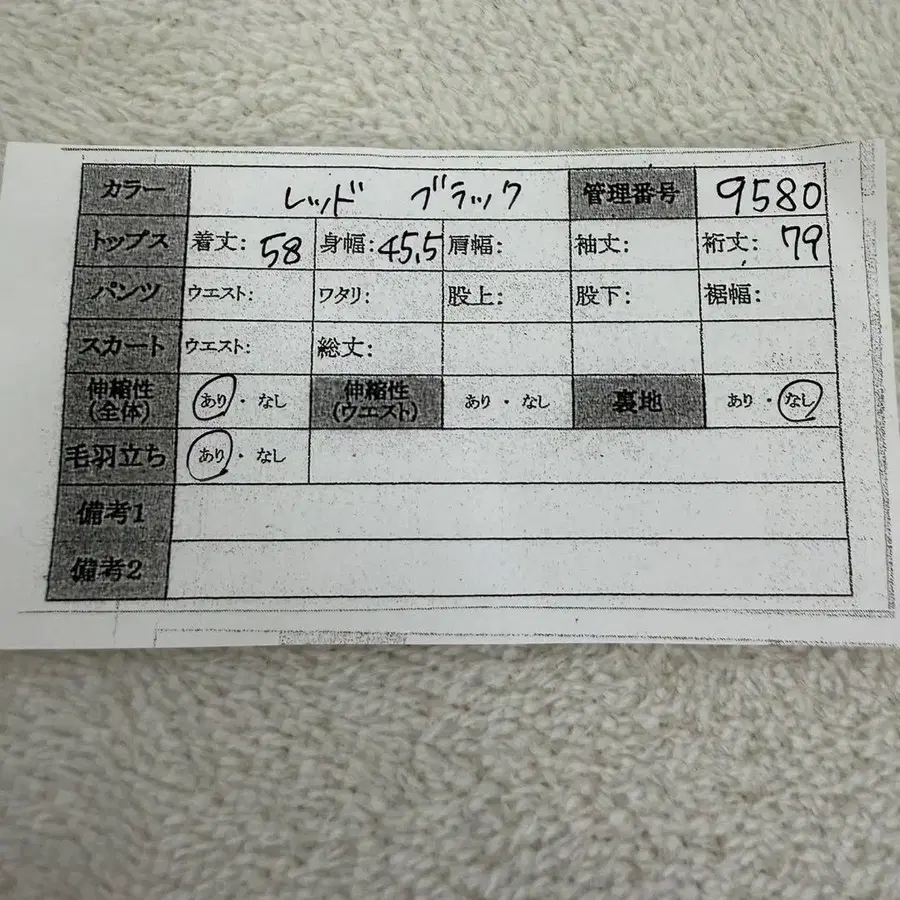 カラー レッド ブラック 管理番号 9580
トップス 着丈: 58 身幅: 45.5 肩幅: 袖丈: 裄丈: 79
パンツ ウエスト: ワタリ: 股上: 股下: 裾幅:
スカート ウエスト: 総丈:
伸縮性(全体) あり・なし 伸縮性(ウエスト) あり・なし 裏地 あり・なし
毛羽立ち あり・なし
備考1
備考2